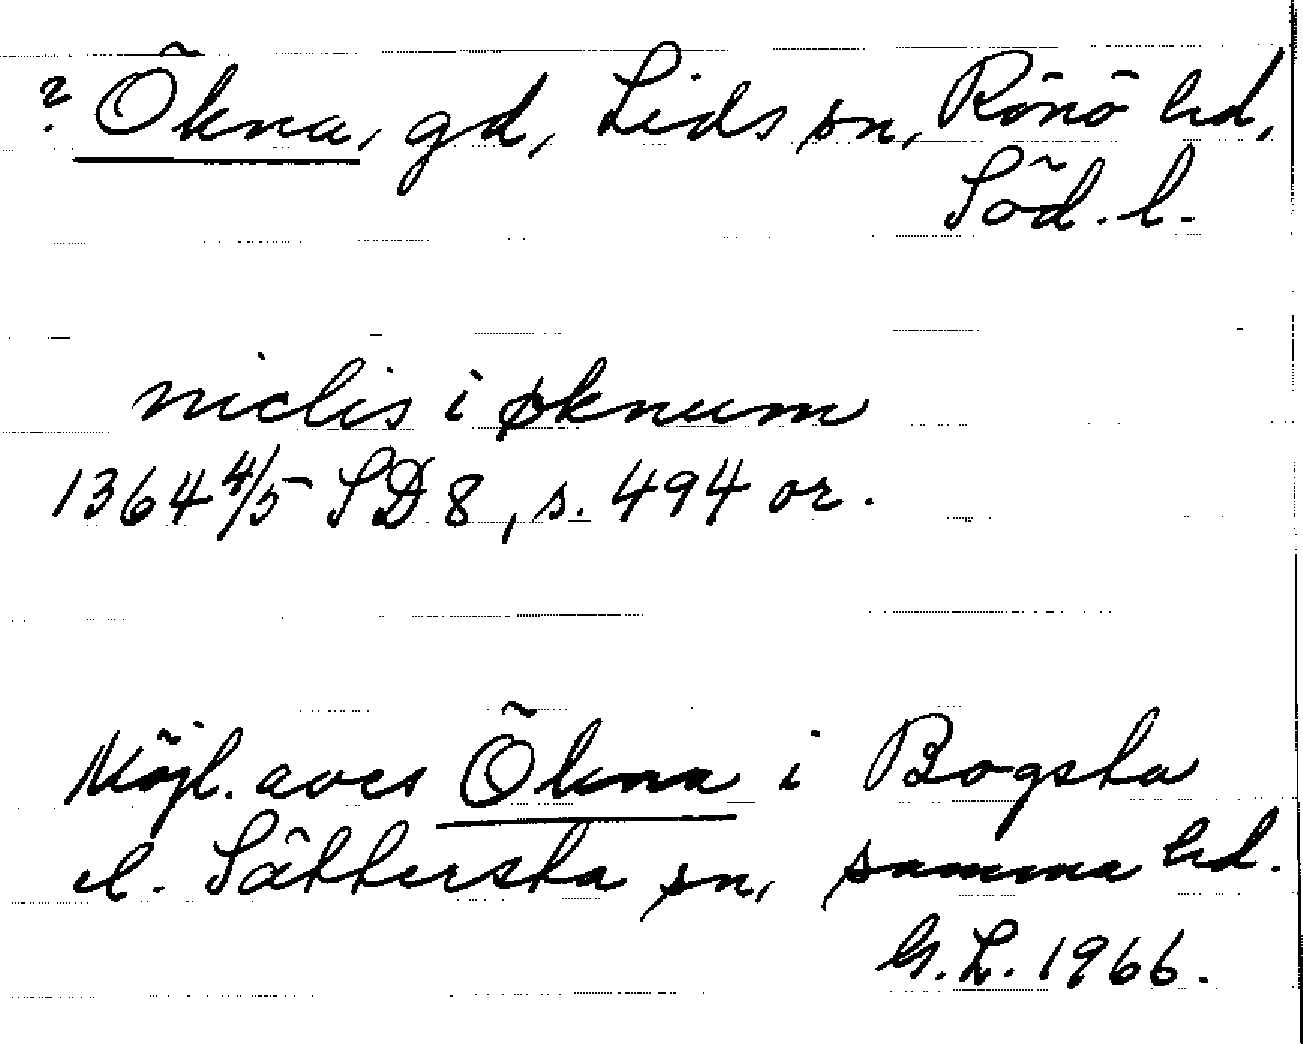 ? Ökna, gd, Lids sn, Rönö hd,
Söd. l.
niclis i øknum
1364 4/5 SD 8, s. 494 or.
Möjl. avses Ökna i Bogsta
el. Sätterska sn, samma hd.
G.L. 1966.